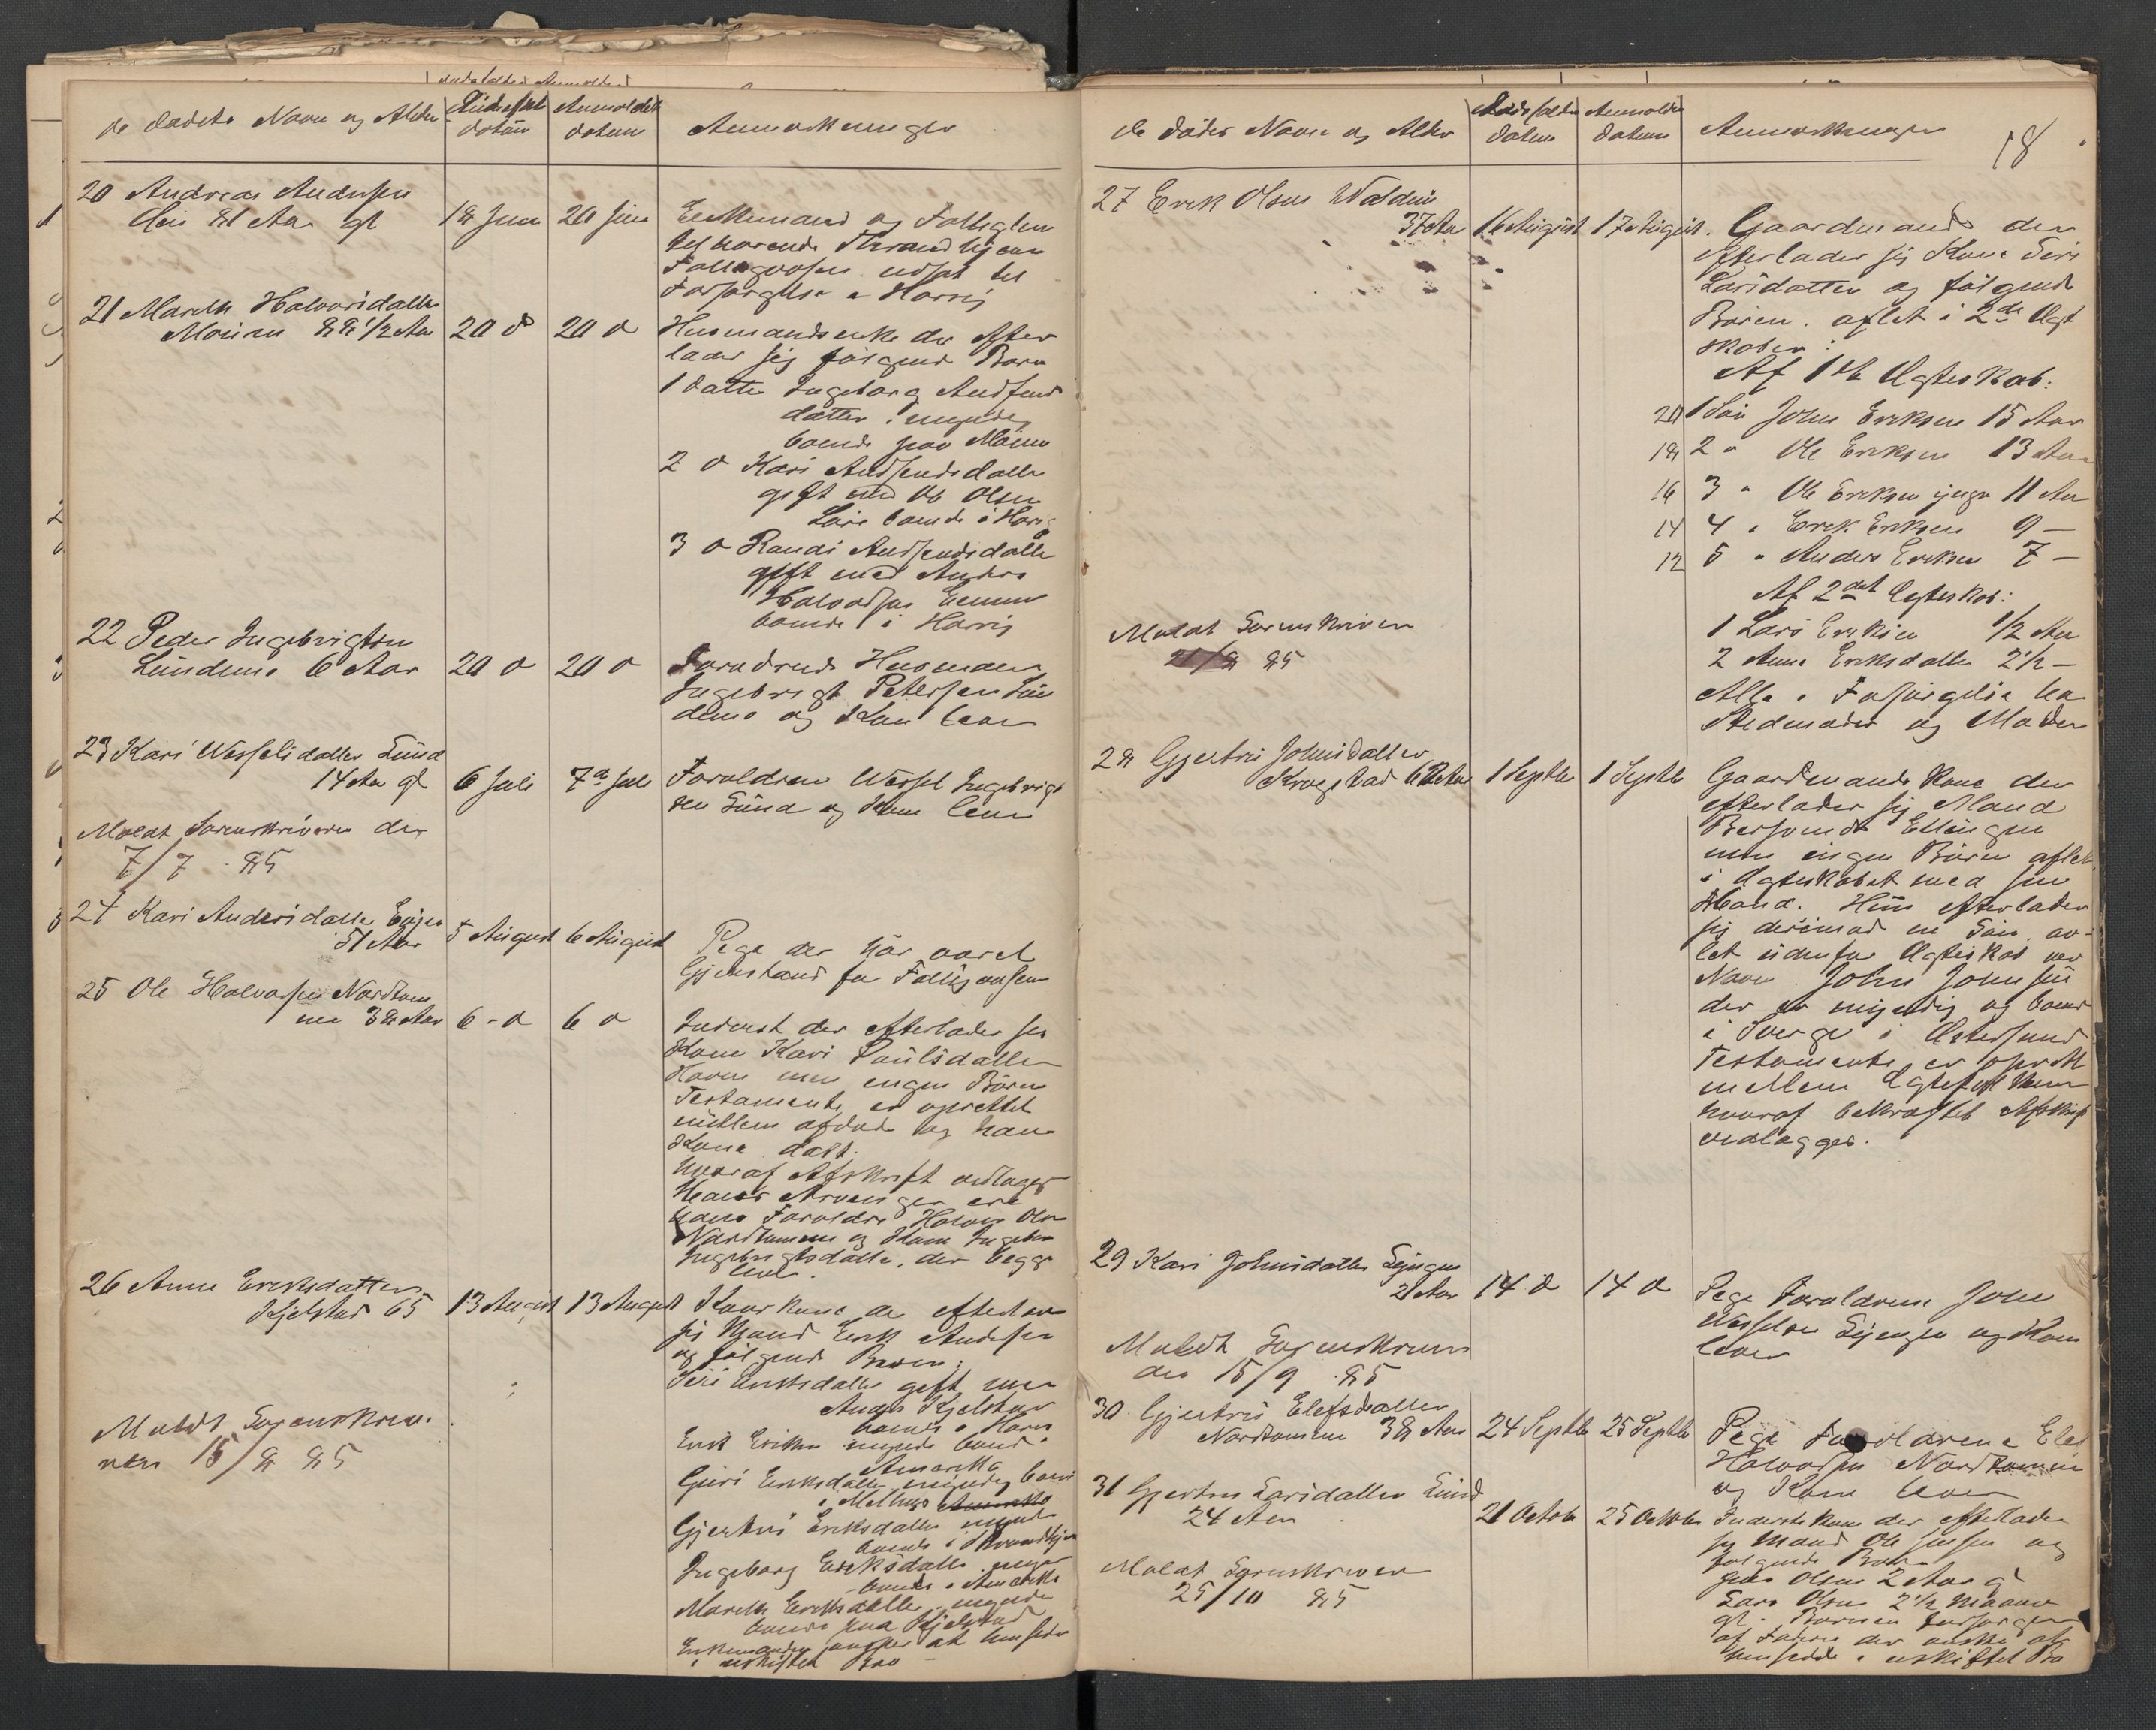 de dødes Navn og Alder
Dødsfalds datum
Anmeldels datum
Anmerkninger
20 Andreas Andersen
81 Aar gl
18 Juni
20 Juni
Enkemand og Fattiglem
tilhørende Throndhjems
Fattigvæsen udsat til
Forsørgelse i Horrig
21 Marith Halvorsdatter
Moum 88 1/2 Aar
20 d
20 d
Husmandsenke der efter
lader sig følgende Børn
1 datter Ingeborg Audfinds
datter, myndig
boende paa Moum
2 d Kari Audfindsdatter
gift med Ole Olsen
boende i Horrig
3 d Randi Audfindsdatter
gift med Anders
Halvorsen
boende i Horrig
22 Peder Ingebrigtsen
Lundemo 6 Aar
20 d
20 d
Forældrene Husmand
Ingebrigt Petersen Lun
demo og Kone lever
23 Kari Wesselsdatter Lund
14 Aar gl
6 Juli
7de Juli
Forældrene Wessel Ingebrigt
sen Lund og Kone lever
Meldt Sorenskriveren den
7/7 - 85
24 Kari Andersdatter
51 Aar
5 August
6 August
Pige der har været
Gjenstand for Fattigvæsen
25 Ole Halvorsen Nordtøm
me 38 Aar
6 - d
6 d
Inderst der efterlader sig
Kone Kari Paulsdatter
men ingen Børn
Testamente er oprettet
mellem afdøde og hans
Kone dat:
hvoraf Afskrift vedlægges
Hans Arvinger ere
hans Forældre Halvor Olsen
Nordtømme og Kone Ingebor
Ingebrigtsdatter, der begge
lever.
26 Anne Eriksdatter
Kjelstad 65
13 August
13 August
Kaarkone der efterlader
sig Mand Erik Andersen
og følgende Børn:
Siri Eriksdatter gift med
Kjelstad
boende i Horrig
Erik Eriksen myndig boende i
Amerika
Guri Eriksdatter myndig boende
i Melhus Amerika
Gjertru Eriksdatter myndig
boende i Throndhjem
Ingeborg Eriksdatter myndig
boende i Amerika
Marith Eriksdatter myndig
boende paa Kjelstad
Enkemanden ønsker at hensidde
i uskiftet Bo
Meldt Sorenskrive-
ren 15/8 85
18
de dødes Navn og Alder
Dødsfalds datum
Anmeldels datum
Anmerkninger
27 Erik Olsen
37 Aar
16 August
17 August.
Gaardmand der
efterlader sig Kone Siri
Larsdatter og følgende
Børn. aflet i 2de Ægt
skaber:
Af 1ste Ægteskab:
20 1 Søn John Eriksen 15 Aar
18 2 " Ole Eriksen 13 Aar
16 3 " Ole Eriksen yngre 11 Aar
14 4 " Erik Eriksen 9 —
12 5 " Anders Eriksen 7 —
Af 2det Ægteskab:
1 Lars Eriksen 1/2 Aar
2 Anne Eriksdatter 2 1/2 —
Alle i Forsørgelse hos
Stedmoder og Moder
Meldt Sorenskriveren
21/8 85
28 Gjertru Johnsdatter
Krogstad
1 Septbr
1 Septbr
Gaardmands Kone der
efterlader sig Mand
Bersvend Ellingsen
men ingen Børn aflet
i Ægteskabet med sin
Mand. Hun efterlader
sig derimod en Søn av-
let udenfor Ægteskab ved
Navn John Johnsen
der er myndig og boende
i Sverge i Østersund
Testamente er oprettet
mellem Ægtefolkene
hvoraf bekræftet Afskrift
vedlægges.
29 Kari Johnsdatter
21 Aar
14 d
14 d
Pige Forældrene John
og Kone
lever
Meldt Sorenskriveren
den 15/9 85
30. Gjertru Elefsdatter
Nordtømme 38 Aar
24 Septbr
25 Septbr
Pige Forældrene Elef
Halvorsen Nordtømme
og Kone lever
31 Gjertru Larsdatter Lund
24 Aar
21 Octobr
25 Octobr
Inderstkone der efterlader
sig Mand Ole Jensen og
følgende Børn
Jens Olsen 2 Aar gl
Lars Olsen 2 1/2 Maaned
gl. Børnene forsørges
af Faderen der ønsker at
hensidde i uskiftet Bo
Meldt Sorenskriveren
25/10 85